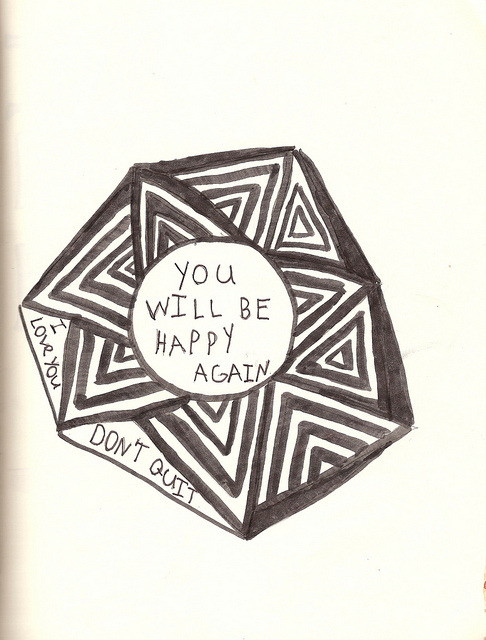 YOU
WILL BE
HAPPY
AGAIN
I
LOVE YOU
DON'T QUIT